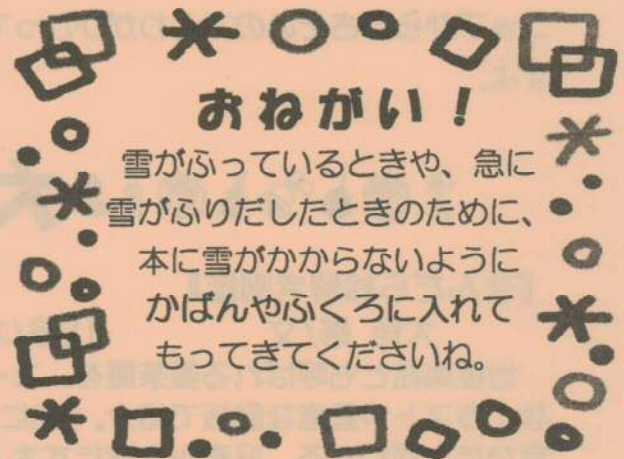 おねがい！
雪がふっているときや、急に
雪がふりだしたときのために、
本に雪がかからないように
かばんやふくろに入れて
もってきてくださいね。